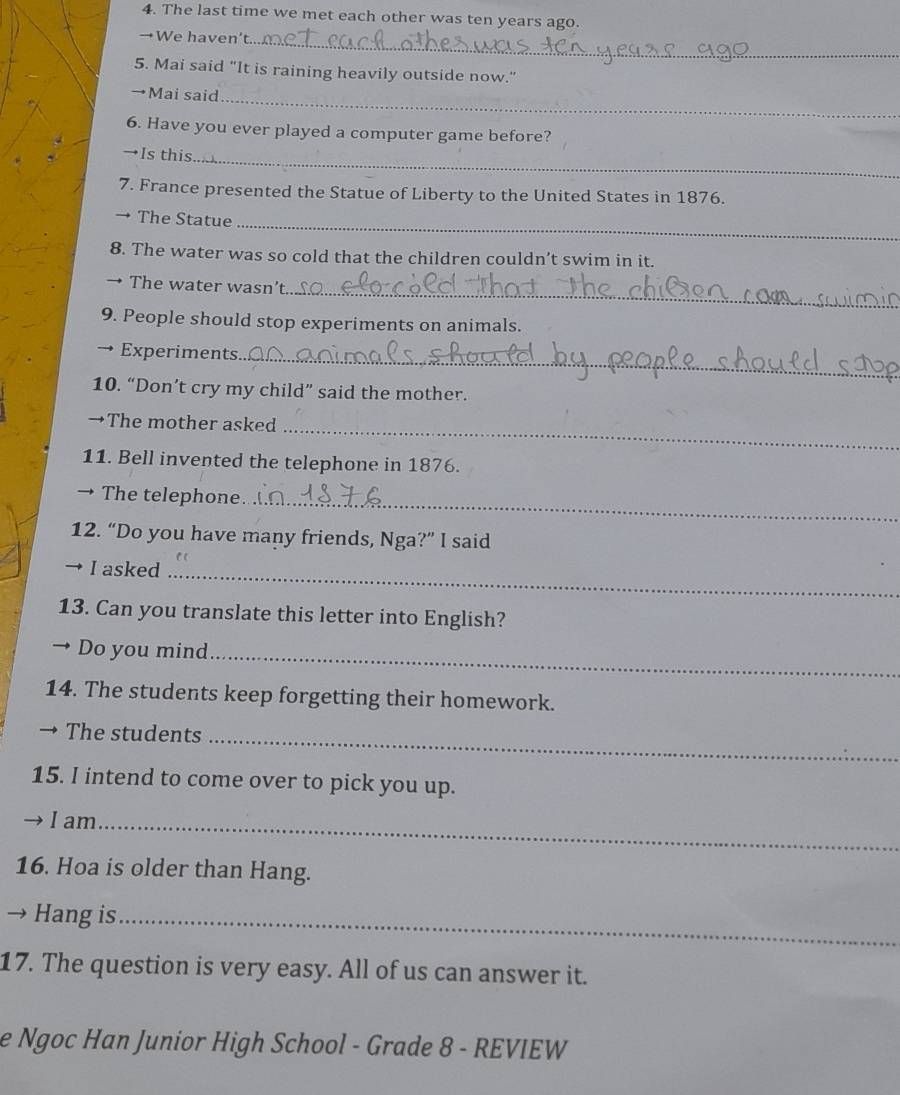 4. The last time we met each other was ten years ago.
→We haven't.. met each other was ten years ago
5. Mai said "It is raining heavily outside now."
→Mai said
6. Have you ever played a computer game before?
→Is this...
7. France presented the Statue of Liberty to the United States in 1876.
→ The Statue
8. The water was so cold that the children couldn't swim in it.
→ The water wasn't.. so cold that the can swimin
9. People should stop experiments on animals.
→ Experiments.. an animals should by people should stop
10. "Don't cry my child" said the mother.
→The mother asked
11. Bell invented the telephone in 1876.
→ The telephone.. in 1876
12. "Do you have many friends, Nga?" I said
→ I asked
13. Can you translate this letter into English?
→ Do you mind
14. The students keep forgetting their homework.
→ The students
15. I intend to come over to pick you up.
→ I am
16. Hoa is older than Hang.
→ Hang is
17. The question is very easy. All of us can answer it.
e Ngoc Han Junior High School - Grade 8 - REVIEW